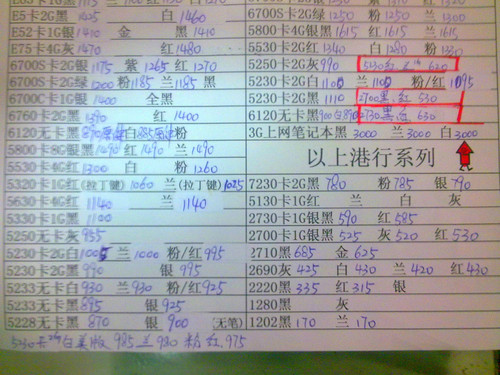 E5卡2G黑 1425 白 1460
E52卡1G银 1410 金 黑 1410
E75卡4G灰 1470 红 1480
6700S卡2G银 1175 紫 1265 红 1270
6700S卡2G绿 1200 粉 1185 兰 1185 黑
6700C卡1G银 1400 全黑
6760卡2G黑 1390 红 1400
6120无卡黑 白 粉
5800卡8G银 1490 红 1490 兰 1490
5530卡4G红 1300 白 粉 1260
5320卡1G红(拉丁键) 1060 兰(拉丁键) 1025
5630卡4G红 1140 兰 1140
5330卡1G黑 1100
5250无卡灰 955
5230卡2G白 1005 兰 1000 粉/红 995
5230卡2G黑 990 银 995
5233无卡白 930 兰 930 粉/红 925
5233无卡黑 895 银 925
5228无卡黑 870 银 900 (无笔)
5230卡2G白美版 985 兰 980 粉红 975
6700S卡2G绿 1250 粉 1250 兰 1250
5800卡4G银 1515 红 1515 兰 1515
5530卡2G红 1340 白 1280 粉 1330
5250卡2G灰 990 5130红 620
5230卡2G白 1105 兰 1100 粉/红 1095
5230卡2G黑 1110 2700黑.红 530
6120无卡黑 900 白 890 2730黑.红 630
3G上网笔记本黑 3000 兰 3000 白 3000
以上港行系列
7230卡2G黑 780 粉 785 银 790
5130卡1G红 兰 白 灰
2730卡1G银黑 590 红 585
2700卡1G银黑 525 灰 520 红 530
2710黑 685 金 625
2690灰 425 白 430 兰 420 红 430
2220黑 335 红 315 银
1280黑 灰
1202黑 170 兰 170